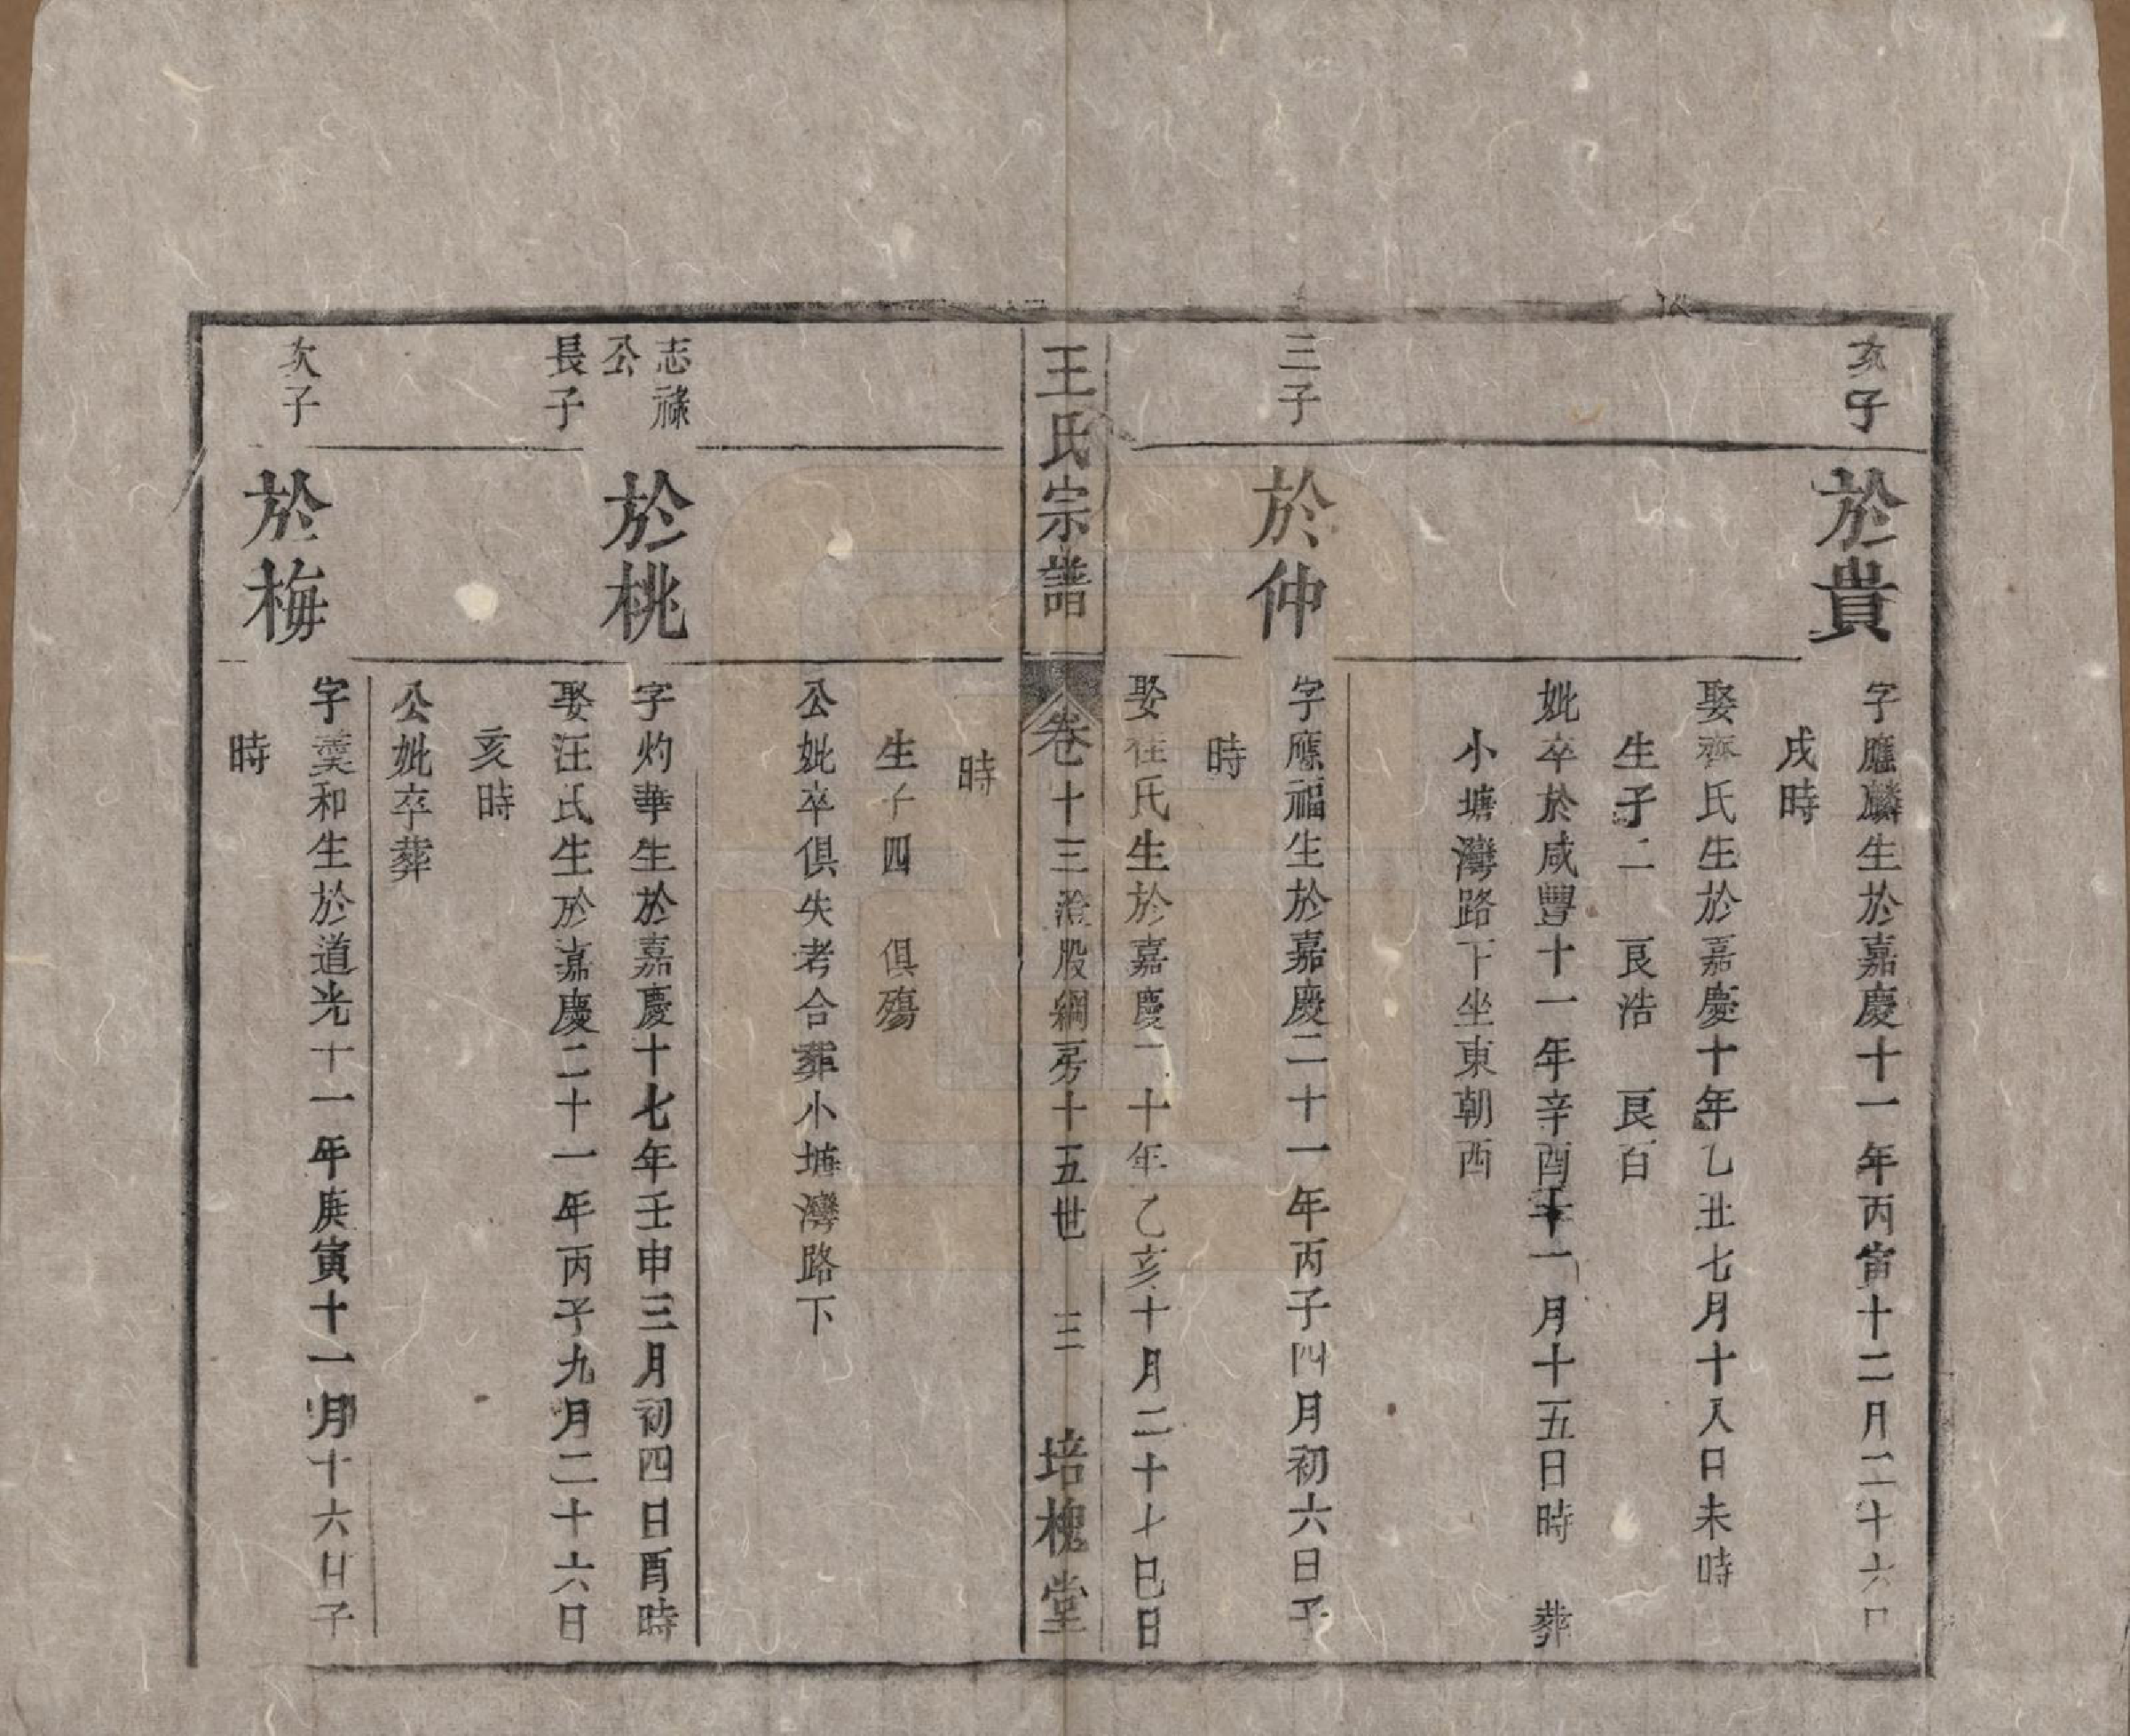 次子
於貴
字應麟生於嘉慶十一年丙寅十二月二十六日
戌時
娶齊氏生於嘉慶十年乙丑七月十八日未時
生子二　良浩　良百
妣卒於咸豐十一年辛酉十一月十五日時　葬
小塘灣路下坐東朝西
三子
於仲
字應福生於嘉慶二十一年丙子四月初六日子
時
娶任氏生於嘉慶二十年乙亥十月二十七日巳
時
王氏宗譜　卷十三　澄股綱房十五世　三　培槐堂
生子四　俱殤
公妣卒俱失考合葬小塘灣路下
志祿
公
長子
於桃
字灼華生於嘉慶十七年壬申三月初四日酉時
娶汪氏生於嘉慶二十一年丙子九月二十六日
亥時
公妣卒葬
次子
於梅
字羹和生於道光十一年庚寅十一月十六日子
時